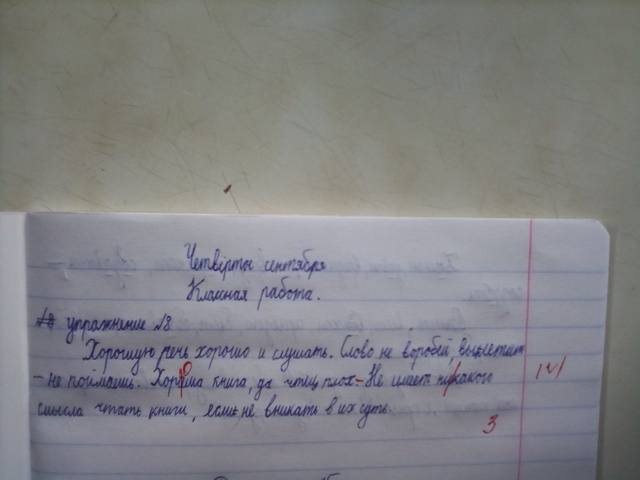 Четвёрты сентября
Класная работа.
упражнение №8
Хорошую речь хорошо и слушать. Слово не воробей, вылетит
– не поймаешь. Хороша книга, да чтец плох – Не имеет никакого
смысла чтать книги, если не вникать в их суть.
3